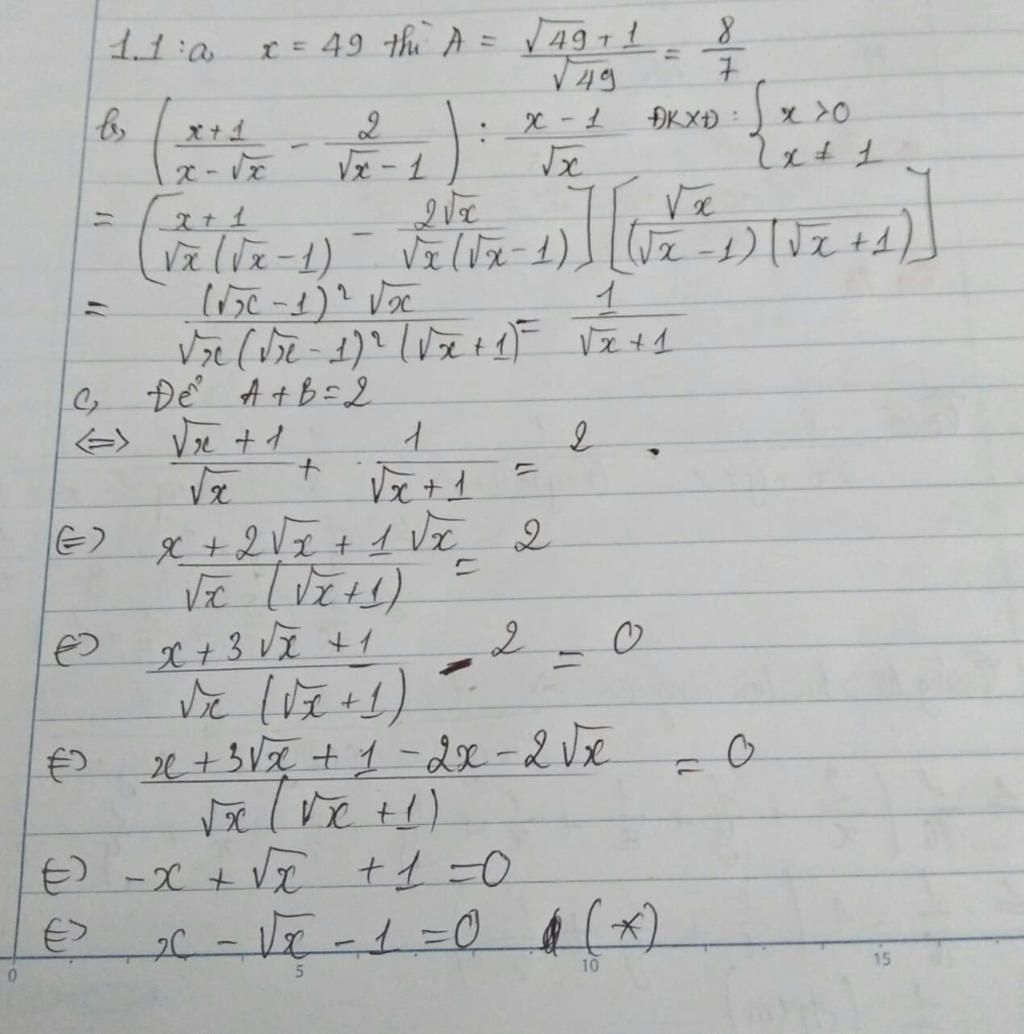 1.1 : a, x = 49 thì A = (√49 + 1)/√49 = 8/7
b, ((x + 1)/(x - √x) - 2/(√x - 1)) : (x - 1)/√x ĐKXĐ : { x > 0
x ≠ 1
= ((x + 1)/(√x (√x - 1)) - 2√x/(√x (√x - 1))] [√x/((√x - 1)(√x + 1))]
= (√x - 1)² √x/(√x (√x - 1)² (√x + 1)) = 1/(√x + 1)
c, Để A + B = 2
<=> (√x + 1)/√x + 1/(√x + 1) = 2
<=> (x + 2√x + 1 √x)/(√x (√x + 1)) = 2
<=> (x + 3√x + 1)/(√x (√x + 1)) - 2 = 0
<=> (x + 3√x + 1 - 2x - 2√x)/(√x (√x + 1)) = 0
<=> -x + √x + 1 = 0
<=> x - √x - 1 = 0 (*)
0 5 10 15